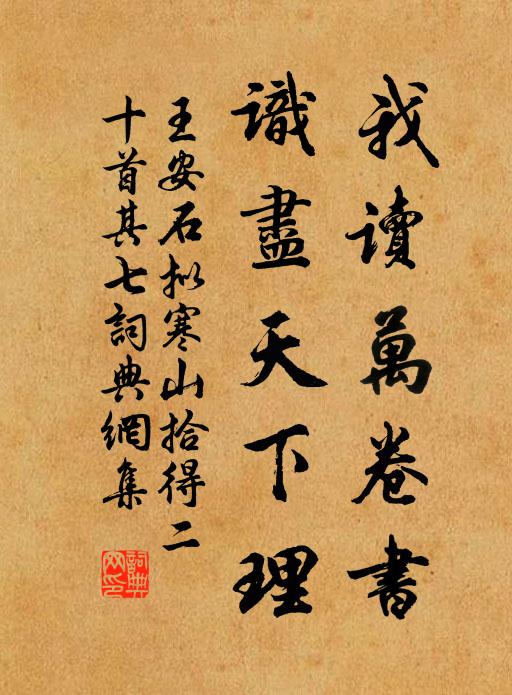 我讀萬卷書
識盡天下理
王安石拟寒山拾得二
十首其七詞典網集
詞典網印